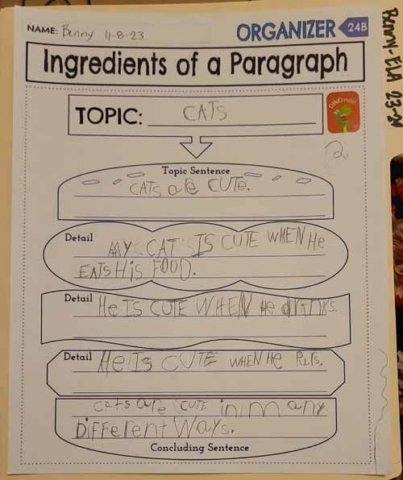 NAME: Benny 11-8-23
ORGANIZER 24B
Ingredients of a Paragraph
TOPIC: CATS
Topic Sentence
CATS are CUTE.
Detail
MY CAT IS CUTE WHEN He
EATS His FOOD.
Detail
He IS CUTE WHEN He drinks.
Detail
He Is CUTE WHEN He
Cats are CUTE in many
DiFFerent Ways.
Concluding Sentence
Benny- ELA 23-24